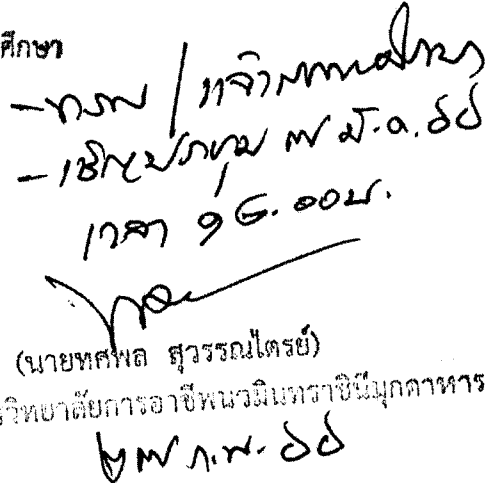 ศึกษา
- ทราบ / แจ้ง
- เชิญประชุม ๗ มี.ค. ๖๖
เวลา ๑๕.๐๐น.
(นายทศพล สุวรรณไตรย์)
วิทยาลัยการอาชีพนวมินทราชินีมุกดาหาร
๒๗ ก.พ. ๖๖